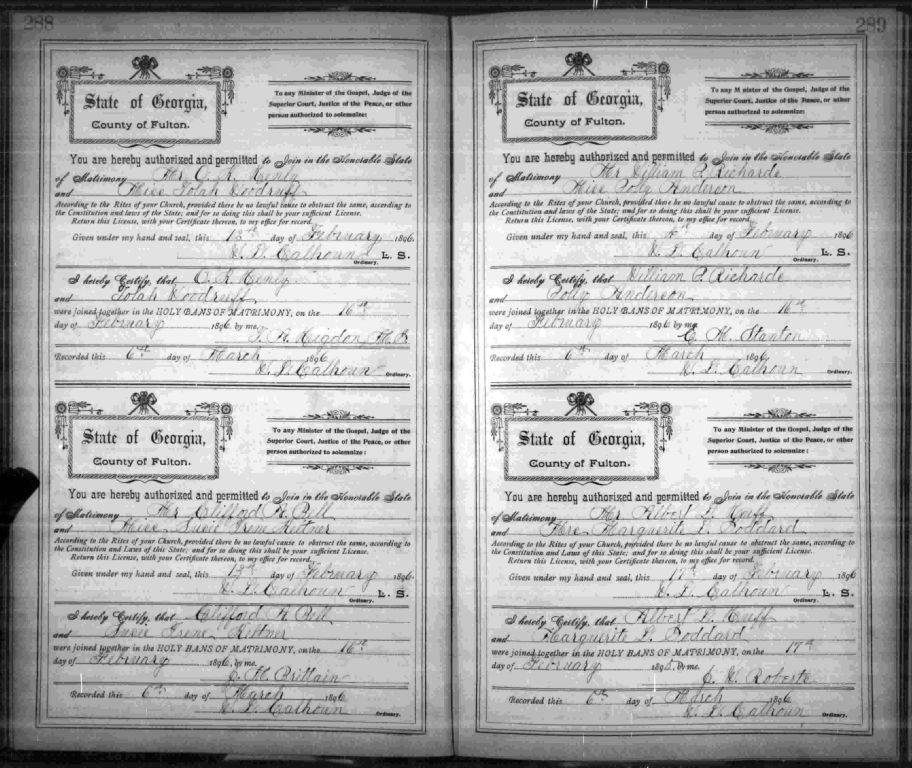 288
State of Georgia,
County of Fulton.
To any Minister of the Gospel, Judge of the
Superior Court, Justice of the Peace, or other
person authorized to solemnize:
You are hereby authorized and permitted to Join in the Honorable State
of Matrimony Mr C. R. Henly
and Miss Iolah Woodruff
According to the Rites of your Church, provided there be no lawful cause to obstruct the same, according to
the Constitution and laws of the State; and for so doing this shall be your sufficient License.
Return this License, with your Certificate thereon, to my office for record.
Given under my hand and seal, this 13th day of February 1896.
W. L. Calhoun L. S.
Ordinary.
I hereby Certify, that C. R. Henly
and Iolah Woodruff
were joined together in the HOLY BANS OF MATRIMONY, on the 16th
day of February 1896 by me.
Higdon, M. G.
Recorded this 6th day of March 1896
W. L. Calhoun
Ordinary.
State of Georgia,
County of Fulton.
To any Minister of the Gospel, Judge of the
Superior Court, Justice of the Peace, or other
person authorized to solemnize:
You are hereby authorized and permitted to Join in the Honorable State
of Matrimony Mr Clifford A. Pell
and Miss Susie Irene Kettner
According to the Rites of your Church, provided there be no lawful cause to obstruct the same, according to
the Constitution and Laws of this State; and for so doing this shall be your sufficient License.
Return this License, with your Certificate thereon, to my office for record.
Given under my hand and seal, this 13th day of February 1896
W. L. Calhoun L. S.
Ordinary.
I hereby Certify, that Clifford A. Pell
and Susie Irene Kettner
were joined together in the HOLY BANS OF MATRIMONY, on the 16th
day of February 1896, by me.
C. M. Brittain
Recorded this 6th day of March 1896
W. L. Calhoun
Ordinary.
289
State of Georgia,
County of Fulton.
To any Minister of the Gospel, Judge of the
Superior Court, Justice of the Peace, or other
person authorized to solemnize:
You are hereby authorized and permitted to Join in the Honorable State
of Matrimony Mr William P. Richards
and Miss Polly Anderson
According to the Rites of your Church, provided there be no lawful cause to obstruct the same, according to
the Constitution and laws of the State; and for so doing this shall be your sufficient License.
Return this License, with your Certificate thereon, to my office for record.
Given under my hand and seal, this day of February 1896
W. L. Calhoun L. S.
Ordinary.
I hereby Certify, that William P. Richards
and Polly Anderson
were joined together in the HOLY BANS OF MATRIMONY, on the 16th
day of February 1896 by me
C. M. Stanton
Recorded this 6th day of March 1896
W. L. Calhoun
Ordinary.
State of Georgia,
County of Fulton.
To any Minister of the Gospel, Judge of the
Superior Court, Justice of the Peace, or other
person authorized to solemnize:
You are hereby authorized and permitted to Join in the Honorable State
of Matrimony Mr Albert L. Huff
and Mrs Marguerite L. Goddard
According to the Rites of your Church, provided there be no lawful cause to obstruct the same, according to
the Constitution and Laws of this State; and for so doing this shall be your sufficient License.
Return this License, with your Certificate thereon, to my office for record.
Given under my hand and seal, this 17th day of February 1896
W. L. Calhoun L. S.
Ordinary.
I hereby Certify, that Albert L. Huff
and Marguerite L. Goddard
were joined together in the HOLY BANS OF MATRIMONY, on the 17th
day of February 1896, by me.
Roberts
Recorded this 6th day of March 1896
W. L. Calhoun
Ordinary.